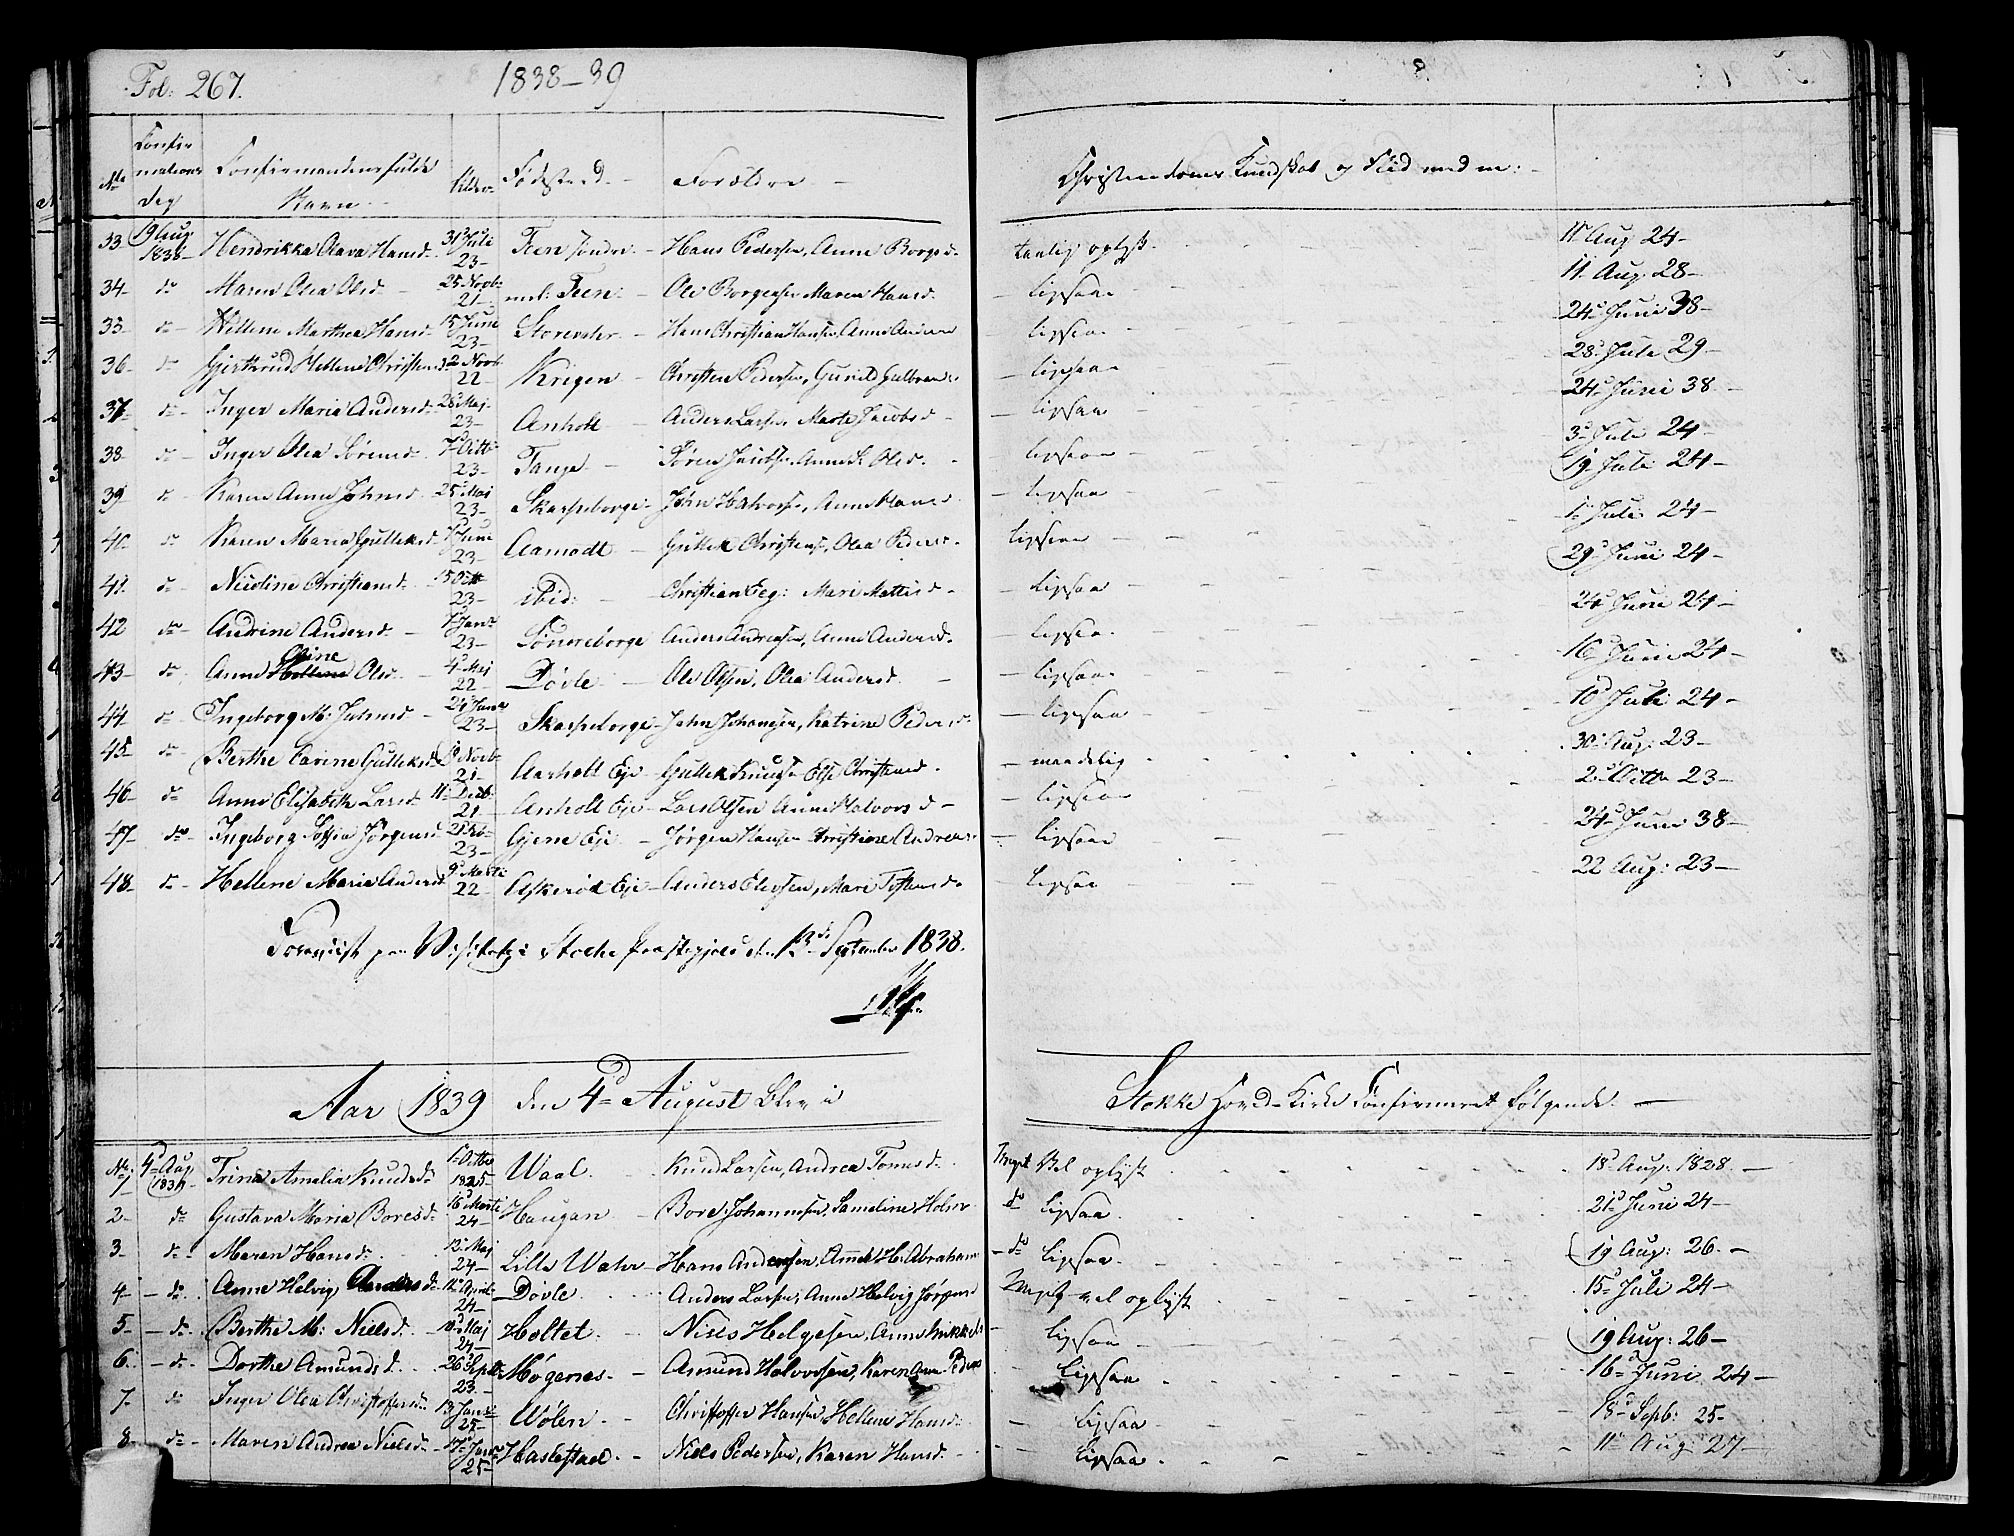 Fol: 267.
1838-39
No
Confir
mations
dag
Confirmandens fulde
Navn
Alder
Fødested
Forældre
Christendoms Kundskab og Flid med m:
33 19 Aug 1838 Hendrikka Olava Hansd. 31 Juli 23 Feen søndre Hans Pedersen, Anne Borgsd. 11 Aug 24
34 do Maren Olea Olsd 25 Novb. 21 mel: Feen Ole Borgersen Maren Hansd. ligesaa 11 Aug. 28
35 do Hellene Marthea Hansd 15 Juni 23 Storevar Hans Christian Hansen, Anne Anders ligesaa 24 Juni 38
36 do Gjertrud Hellene Christensd 2 Novb 22 Krigen Christen Pedersen, Gunild Gulbrands. ligesaa 28 Juli 29
37 do Inger Maria Andersd. 28 Maj 23 Anholt Anders Larsen Marte Jacobsd ligesaa 24 Juni 38
38 do Inger Olea Sørensd 7 Octb. 23 Tange Søren Jacobsen, Anne K. Olsd. ligesaa 3 Juli 24
39 do Karen Anne Johnsd 25 Maj 23 Skarpeborge John Halvorsen, Anne Hansd ligesaa 19 Juli 24
40 do Karen Maria Gulleksd 7 Juni 23 Aamodt Gullek Christens, Olea Peders. ligesaa 1 Juli 24
41 do Nicoline Christiansd. 15 Octb 23 ibid: Christian Eeg: Mari Mattisd ligesaa 29 Juni 24
42 do Andrine Andersd 7 Janr 23 Sønoreborge Anders Andreasen, Anne Andersd. ligesaa 24 Juni 24
43 do Anne Hellene Oline Olsd 4 Maj 22 Døvle Ole Olsen, Olea Andersd. ligesaa 16 Juni 24
44 do Ingeborg M: Johnsd 24 Janr 23 Skarpeborge John Johansen, Katrine Pedersd ligesaa 18 Juli 24
45 do Berthe Carine Gulleksd Novb. 21 Aarholt Eje Gullek Knudsen Else Christensd. maadelig 30 Aug: 23
46 do Anne Elisabeth Larsd 11 Decb: 21 Anholt Eje Lars Olsen Anne Halvorsd ligesaa 2 Octb 23
47 do Ingeborg Sofia Jørgensd 21 Feb 23 Gjene Eje Jørgen Hansen Christiane Andreas: ligesaa 24 Juni 38
48 do Hellene Maria Andersd 9 Marti 22 Askerød Eje Anders Elevsen, Mari Tostensd. ligesaa 22 Aug: 23
Foreviist paa Visitatz i Stocke Præstegjeld den 13de September 1838.
Aar 1839 den 4d August blev i Stokke Hoved-Kirke Confirmeret følgende.
No 1 4 Aug 1839 Trine Amalia Knudsd. Octbr 1825 Waal Knud Larsen, Andrea Tomasd. Meget Vel oplyst 18 Aug: 1828.
2 do Gustava Maria Boresd. 16 Marti 24 Haugan Bore Johannesen, Sameline Holm do ligesaa 21 Juni 24
3 do Maren Hansd. 12 Maj 24 Lille Wahr Hans Andersen, Anne H: Abraham do ligesaa 19 Aug: 26.
4 do Anne Helvig Andersd. 12 April 24 Døvle Anders Larsen, Anne Helvig Jørgens Meget vel oplyst 15 Juli 24
5 do Berthe M: Nielsd. 10 Maj 24 Holtet Niels Helgesen, Anne Mikkels ligesaa 19 Aug: 26
6 do Dorthe Amundsd. 26 Septb 23 Møgernes Amund Halvorsen, Karen Anne Peders ligesaa 16 Juni 24
7 do Inger Olea Christoffersd. 13 Janr 25 Wølen Christoffer Hansen, Hellene Hansd. ligesaa 18 Septb: 25
8 do Maren Andrea Nielsd. 17 Janr 25 Haslestad Niels Pedersen, Karen Hansd. ligesaa 11 Aug: 27